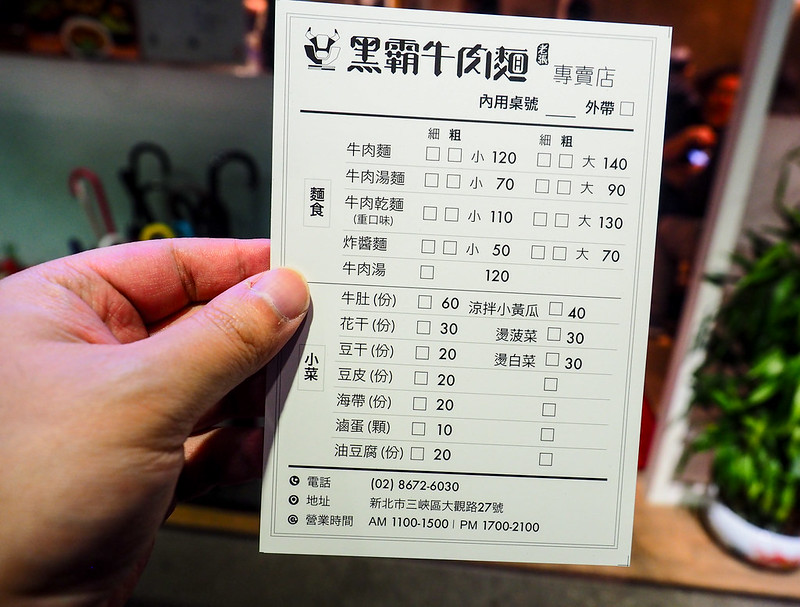 黑霸牛肉麵 老張 專賣店
內用桌號 ____ 外帶 □
細 粗 細 粗
麵食
牛肉麵 □ □ 小 120 □ □ 大 140
牛肉湯麵 □ □ 小 70 □ □ 大 90
牛肉乾麵 □ □ 小 110 □ □ 大 130
(重口味)
炸醬麵 □ □ 小 50 □ □ 大 70
牛肉湯 □ 120
小菜
牛肚(份) □ 60 涼拌小黃瓜 □ 40
花干(份) □ 30 燙菠菜 □ 30
豆干(份) □ 20 燙白菜 □ 30
豆皮(份) □ 20 □
海帶(份) □ 20 □
滷蛋(顆) □ 10 □
油豆腐(份) □ 20 □
電話 (02) 8672-6030
地址 新北市三峽區大觀路27號
營業時間 AM 1100-1500 | PM 1700-2100